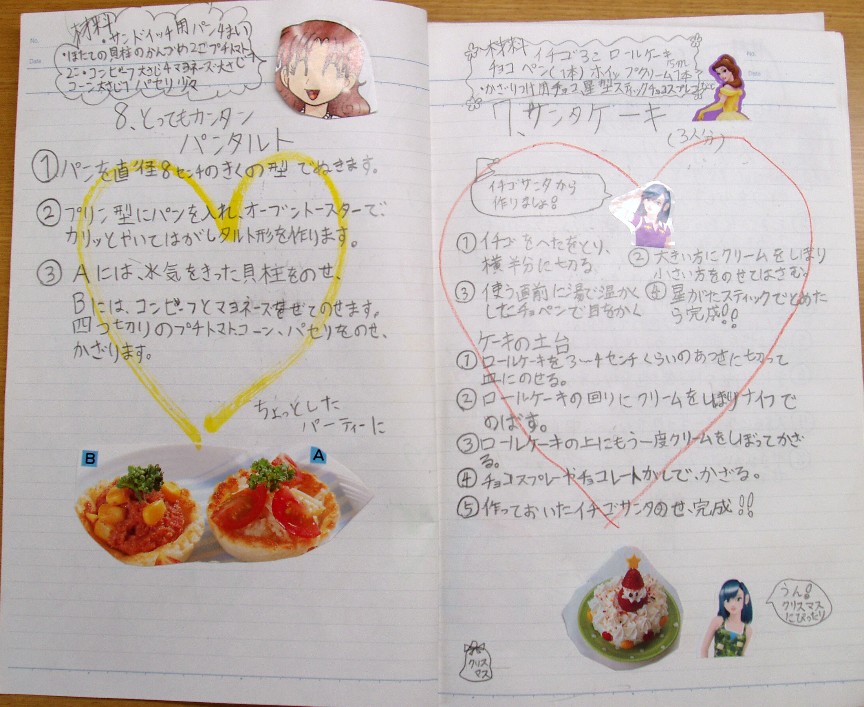 材料
・サンドイッチ用パン4まい
・ほたての貝柱のかんづめ2コ・プチトマト
2こ・コンビーフ大さじ4マヨネーズ大さじ1
コーン大さじ1 パセリ少々
8、とってもカンタン
パンタルト
① パンを直径8センチのきくの型でぬきます。
② プリン型にパンを入れ、オーブントースターで
カリッとやいてはがしタルト形を作ります。
③ Aには、水気をきった貝柱をのせ、
Bには、コンビーフとマヨネーズをまぜてのせます。
四つ切りのプチトマトコーン、パセリをのせ、
かざります。
ちょっとした
パーティーに
B
A
材料 イチゴ3こ ロールケーキ
チョコペン(1本)ホイップクリーム1本
・かざりつけ用チョコ、星型スティックチョコスプレー
7、サンタケーキ
(3人分)
イチゴサンタから
作りましょ!
① イチゴをへたをとり、
横半分に切る
② 大きい方にクリームをしぼり
小さい方をのせてはさむ。
③ 使う直前に湯で温かく
したチョペンで目をかく
④ 星がたスティックでとめた
ら完成!!
ケーキの土台
① ロールケーキを3〜4センチくらいのあつさに切って
皿にのせる。
② ロールケーキの回りにクリームをしぼりナイフで
のばす。
③ ロールケーキの上にもう一度クリームをしぼってかざ
る。
④ チョコスプレーやチョコレートがしで、かざる。
⑤ 作っておいたイチゴサンタのせ、完成!!
うん!
クリスマス
にぴったり
クリス
マス